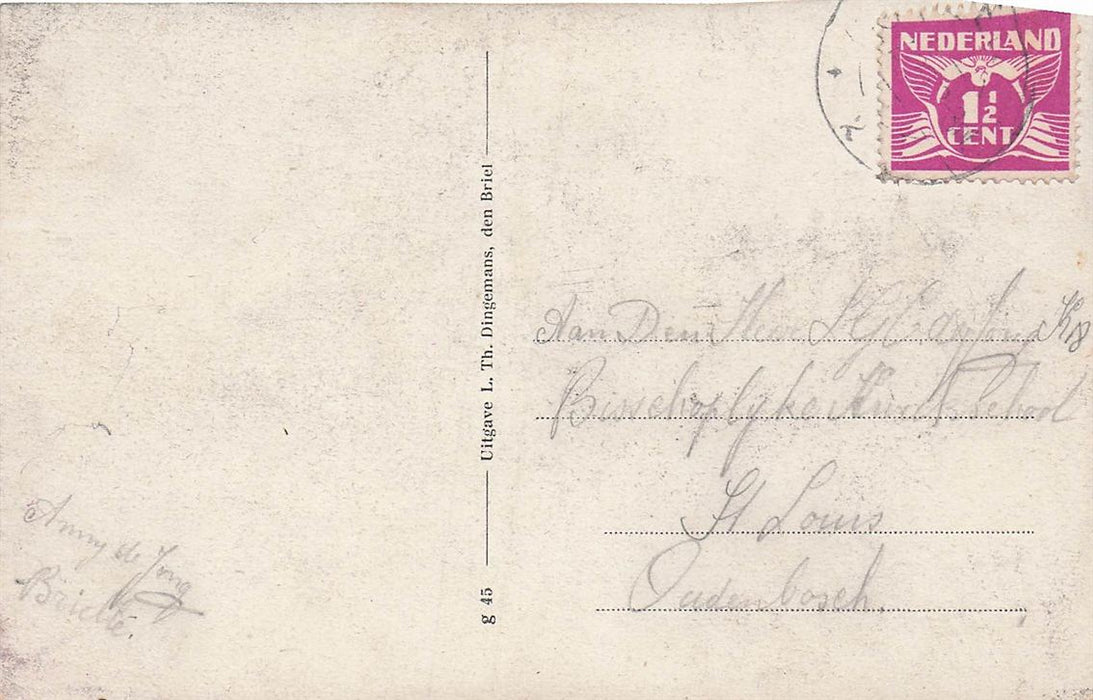 NEDERLAND
1½
CENT
Uitgave L. Th. Dingemans, den Briel
g 45
Aan Den Heer de Jong
Bisschoplyke Kweekschool
St Louis
Oudenbosch.
Anny de Jong
Brielle.